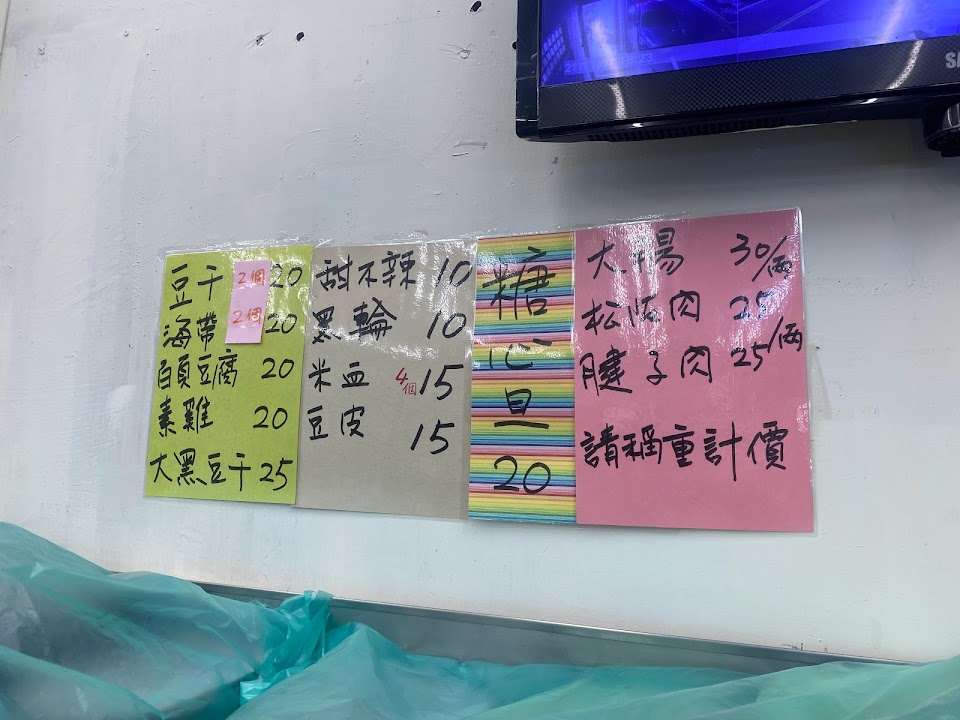 豆干 2個 20
海帶 2個 20
百頁豆腐 20
素雞 20
大黑豆干 25
甜不辣 10
黑輪 10
米血 4個 15
豆皮 15
糖
心
旦
20
大腸 30/兩
松阪肉 25/兩
腱子肉 25
請稱重計價
SA